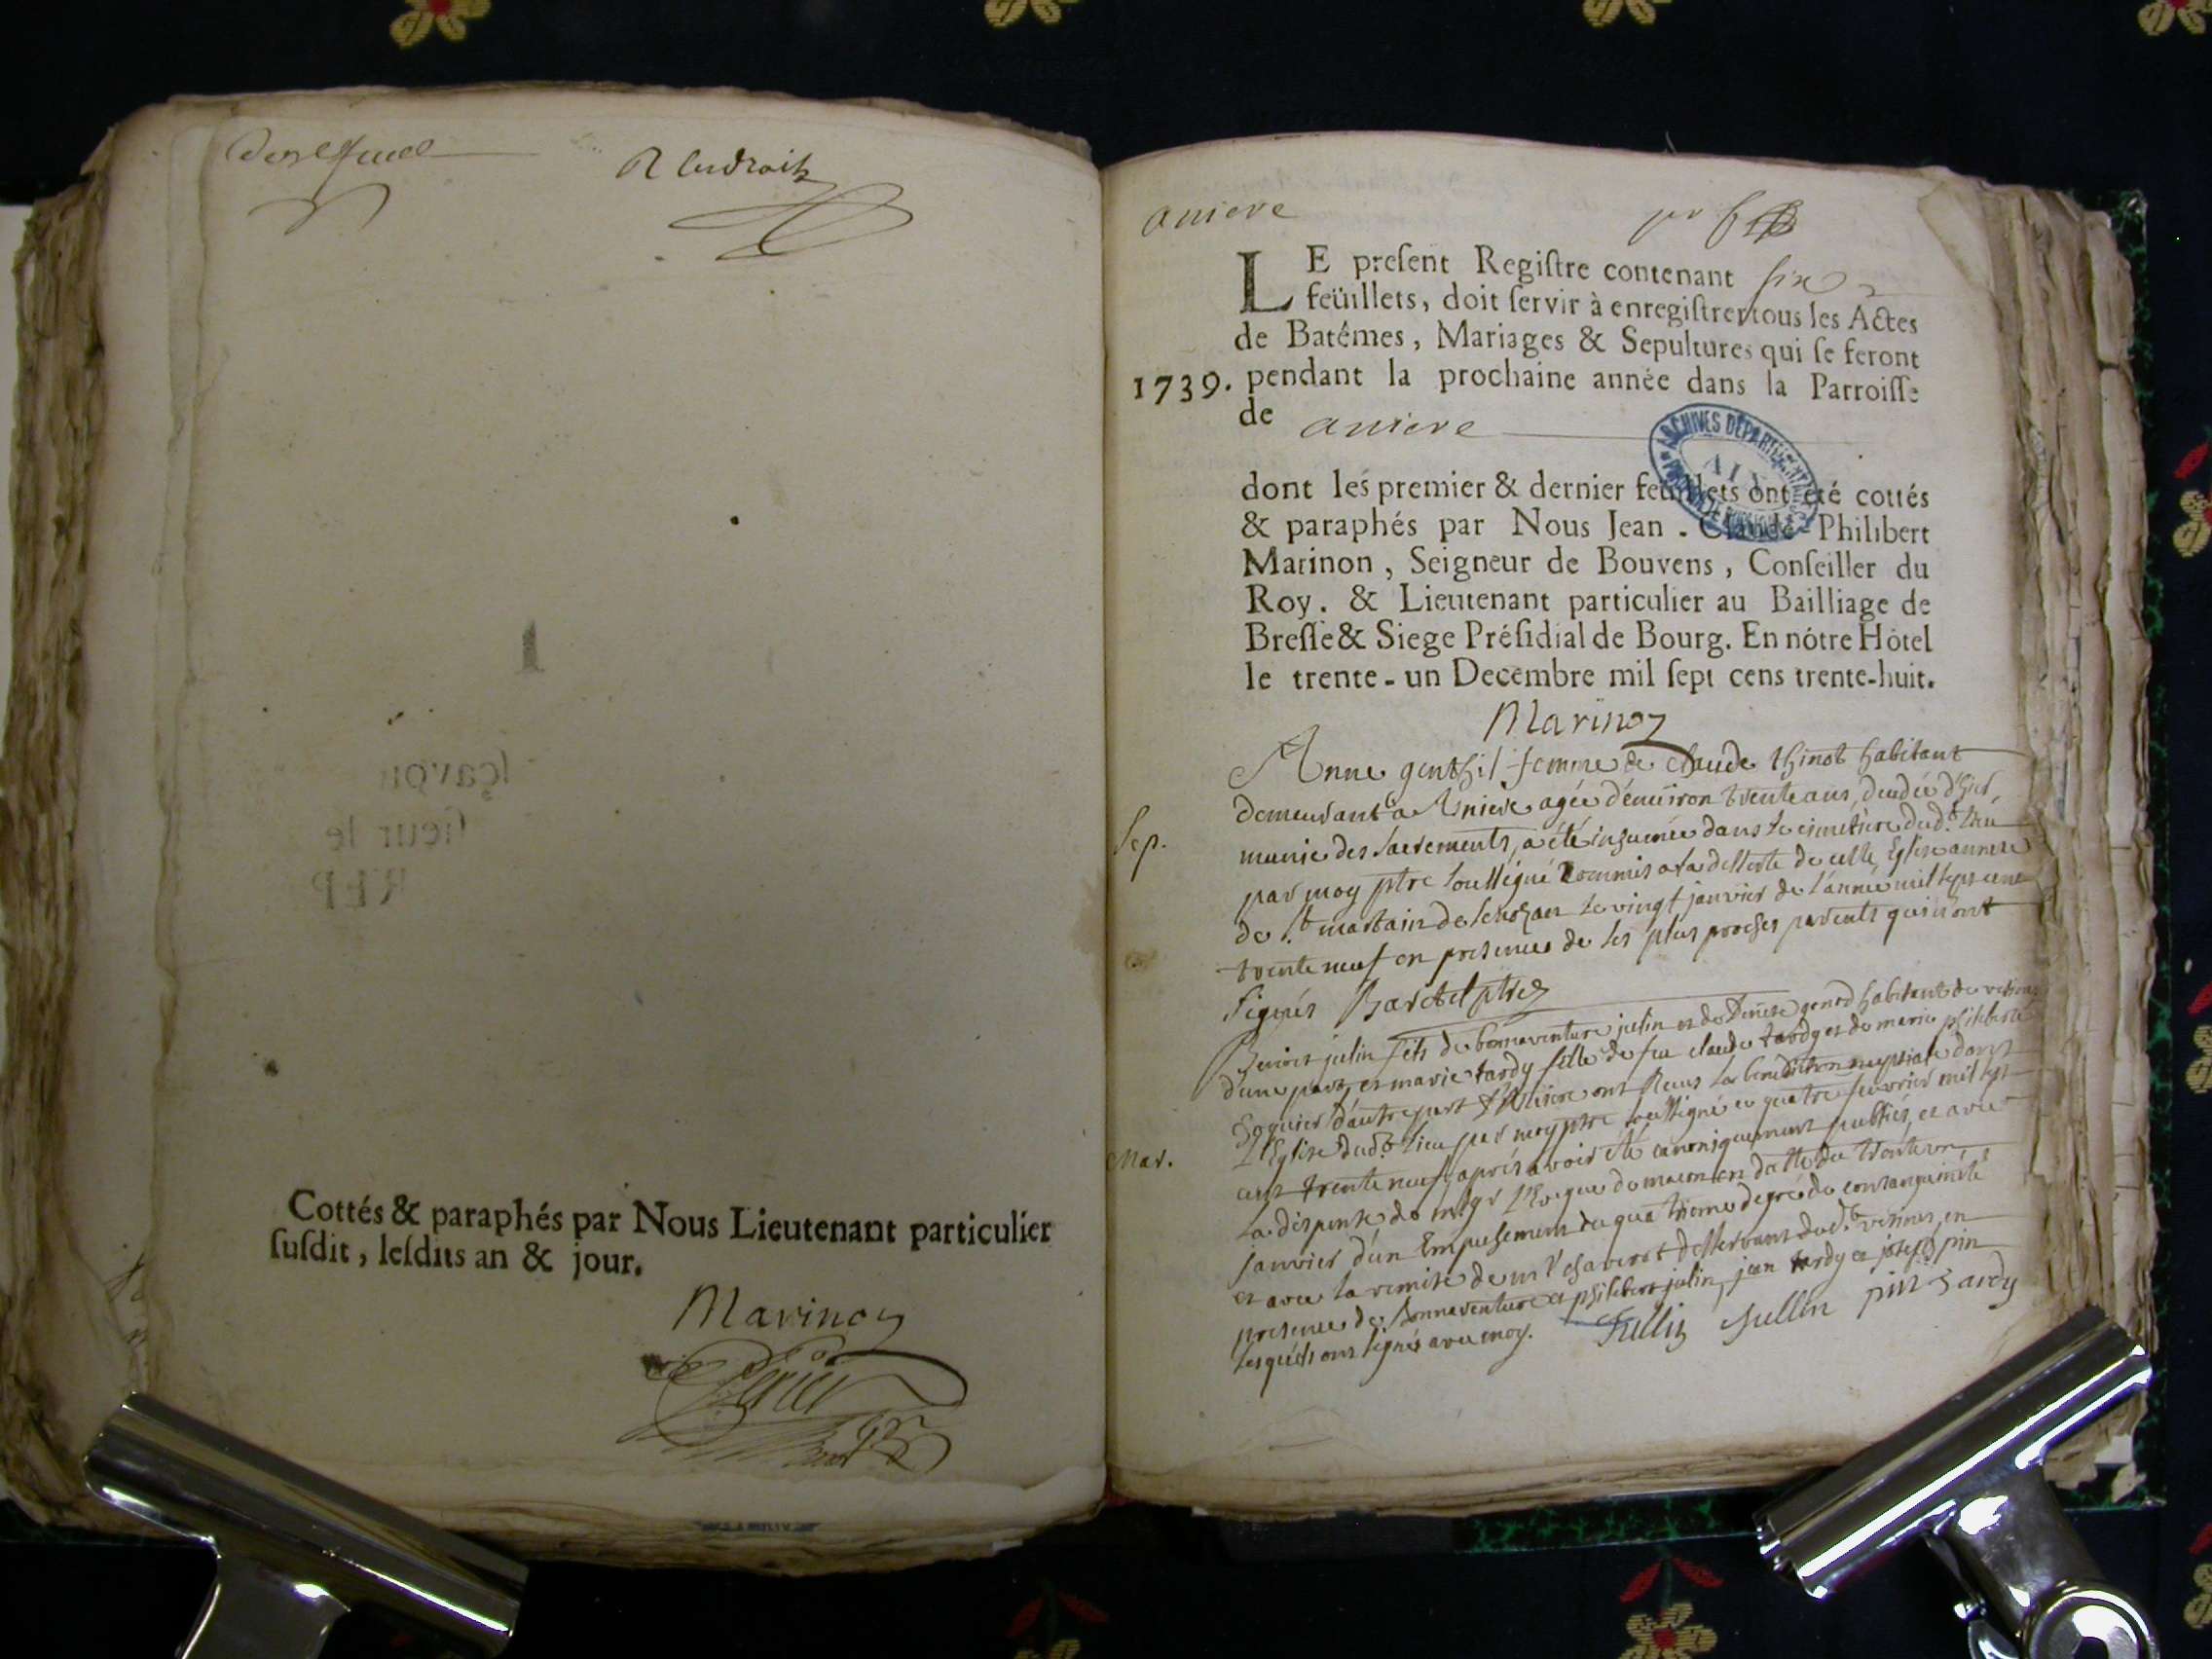 R Cudraitz
Cottés & paraphés par Nous Lieutenant particulier
ſuſdit, leſdits an & jour.
Marinon
Perier
aniere
pr 6
LE preſent Regiſtre contenant six
feüillets, doit ſervir à enregiſtrer tous les Actes
de Batêmes, Mariages & Sepultures qui ſe feront
1739. pendant la prochaine année dans la Parroiſſe
de aniere
ARCHIVES DÉPARTEMENTALES
AIN
dont les premier & dernier feuillets ont eté cottés
& paraphés par Nous Jean-Claude-Philibert
Marinon, Seigneur de Bouvens, Conſeiller du
Roy. & Lieutenant particulier au Bailliage de
Breſſe & Siege Préſidial de Bourg. En nôtre Hôtel
le trente-un Decembre mil ſept cens trente-huit.
Marinon
Anne genthil femme de claude thinot habitant
demeurant a Aniere agée d'environ trente ans, decedée d'hier,
Sep.
munie des sacrements, a été inhumée dans le cimetiere dud.t lieu
par moy ptre soussigné commis a la desserte de cette Eglise annexe
de St martain de le vingt janvier de l'année mil sept cent
trente neuf en presence de ses plus proches parents qui n'ont
signés Barctel ptre
Benoit julin fils de bonnaventure julin et de Denise habitant de
d'une part, et marie tardy fille de feu claude tardy et de marie philiberte
d'autre part d'Aniere ont Receus la benediction nuptiale dans
Mar.
L'Eglise dud.t lieu par moy ptre soussigné ce quatre fevrier mil sept
cent trente neuf, aprés avoir été canoniquement publiés, et avec
la dispense de mgr l'Eveque de macon en datte du trente un
janvier d'un Empechement du quatrieme degré de consanguinité
et avec la remise de mr chaverot desservant dud.t en
presence de bonnaventure et philibert julin, jean tardy et joseph pin
lesquels ont signés avec moy. Jullin Jullin pin tardy